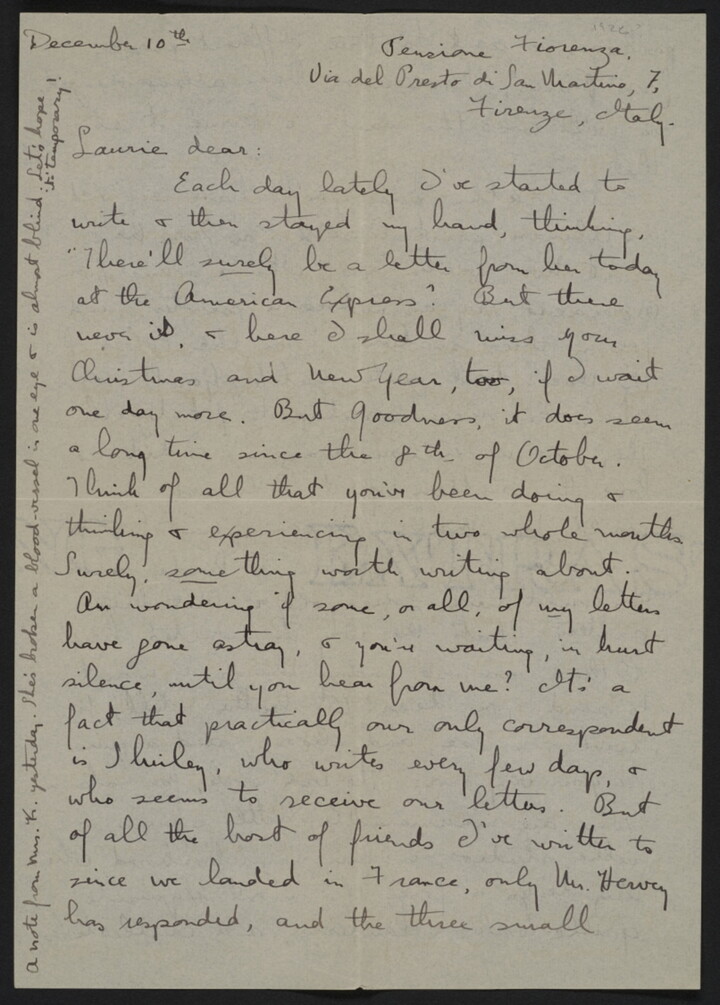 December 10th
Pensione Fiorenza.
Via del Presto di San Martino, 7,
Firenze, Italy.
Laurie dear:
Each day lately I've started to
write & then stayed my hand, thinking,
"There'll surely be a letter from her today
at the American Express? But there
never is, & here I shall miss your
Christmas and New Year, too, if I wait
one day more. But goodness, it does seem
a long time since the 8th of October.
Think of all that you've been doing &
thinking & experiencing in two whole months
Surely, something worth writing about.
Am wondering if some, or all, of my letters
have gone astray, & you're waiting, in hurt
silence, until you hear from me? It's a
fact that practically our only correspondent
is Shirley, who writes every few days, &
who seems to receive our letters. But
of all the host of friends I've written to
since we landed in France, only Mr. Hervey
has responded, and the three small
A note from Mrs. K. yesterday. She's broken a blood-vessel in one eye & is almost blind. Let's hope
it's temporary!